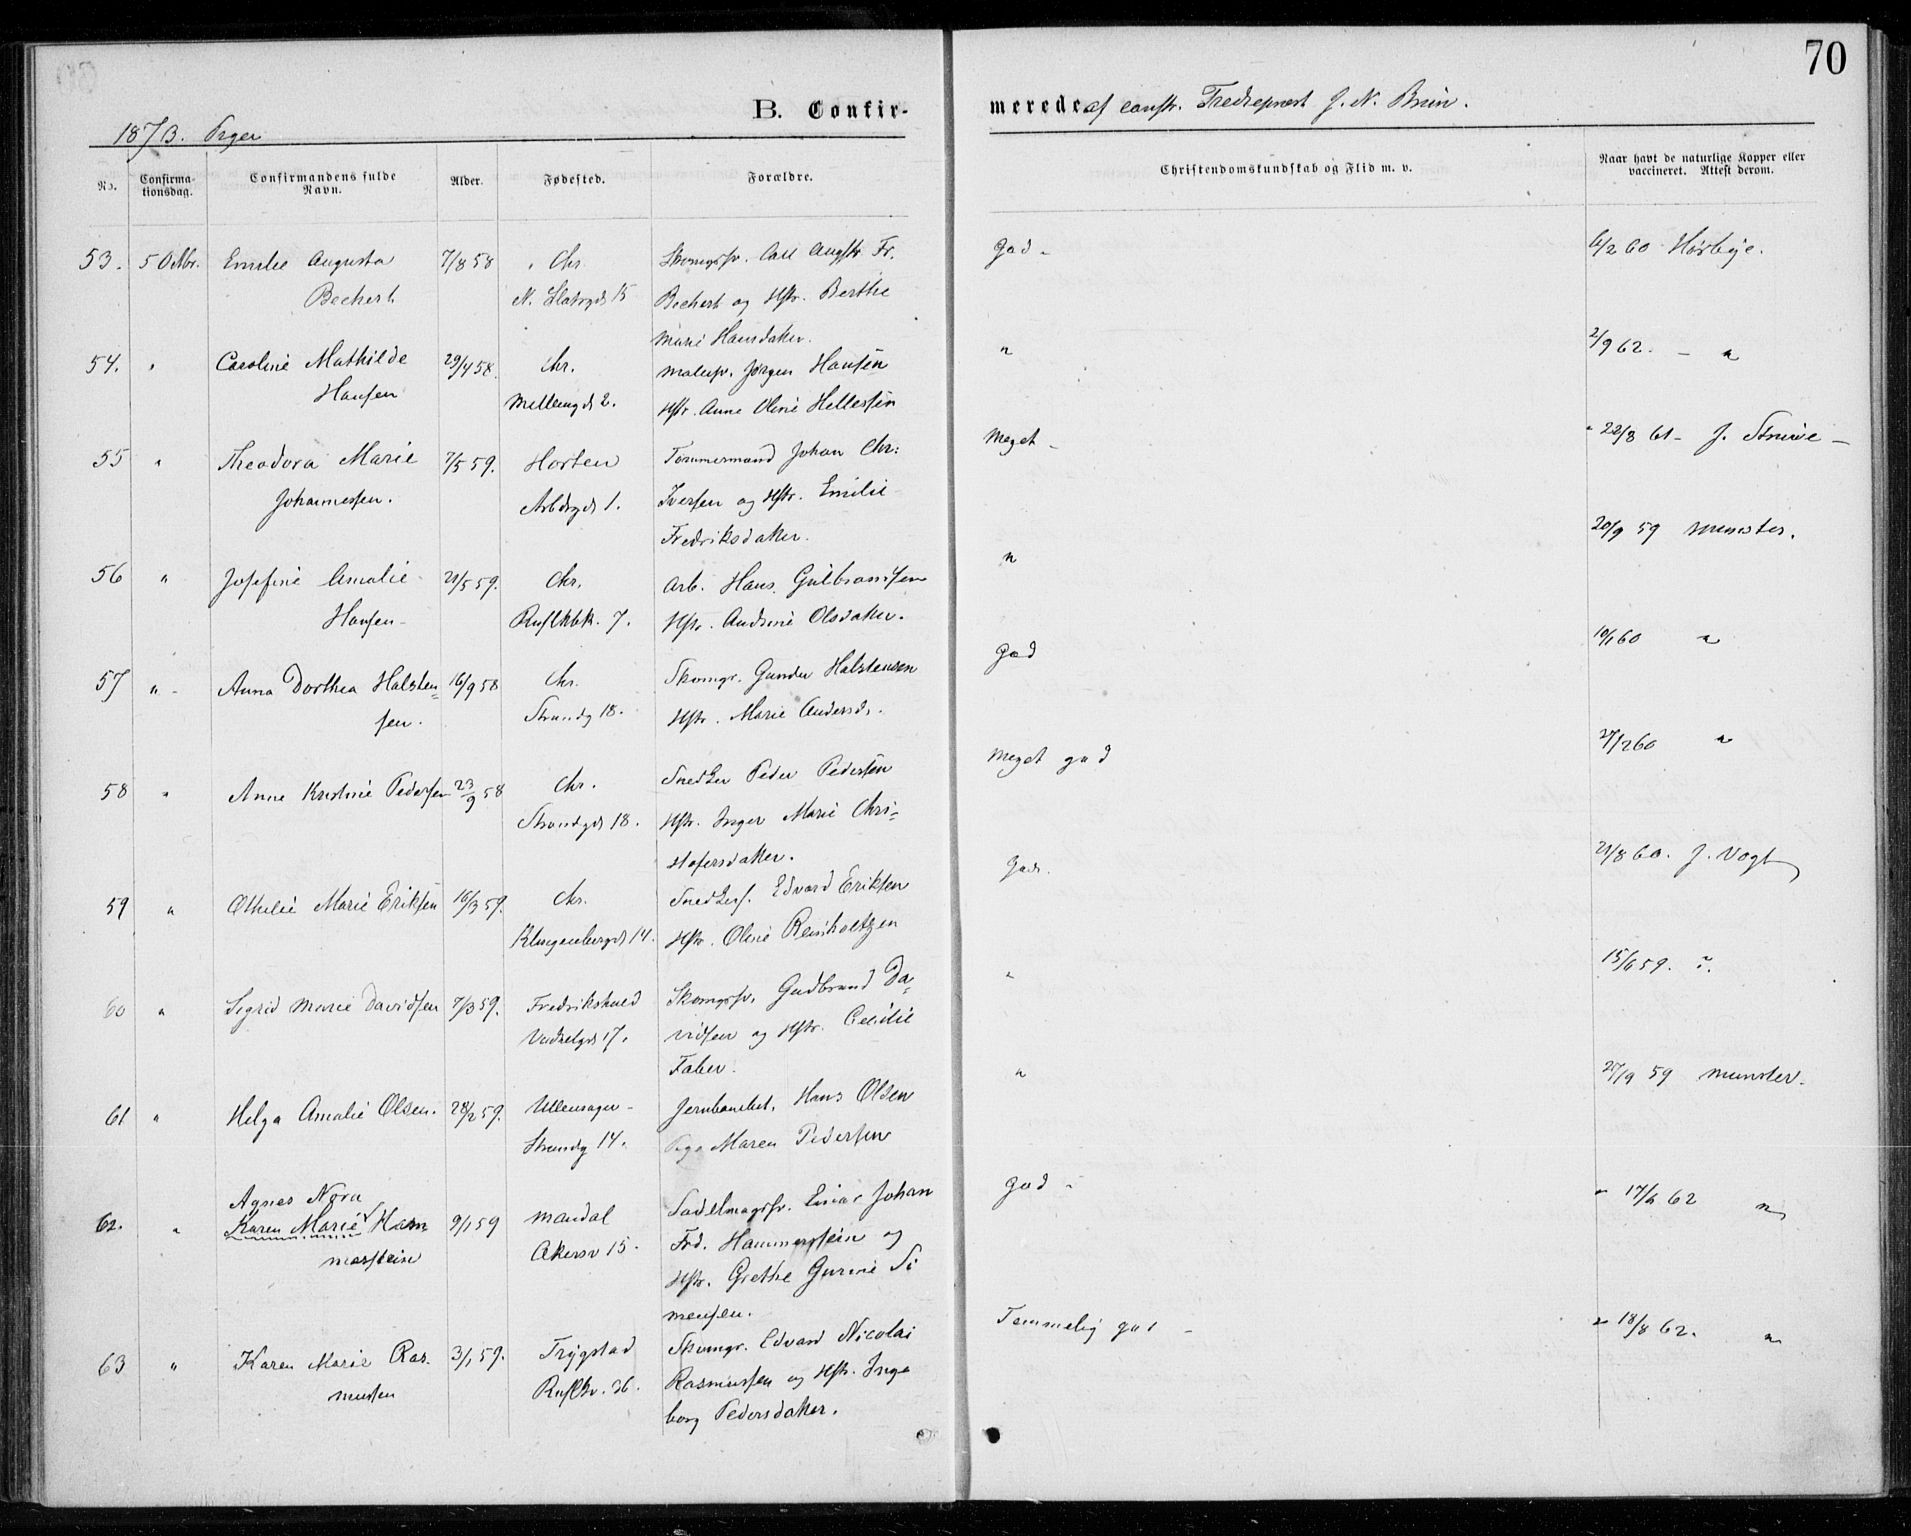 70
B. Confir-
merede af constr. Tredieprest J. N. Brun.
1873. Piger
No.
Confirma-
tionsdag.
Confirmandens fulde
Navn.
Alder.
Fødested.
Forældre.
Christendomskundskab og Flid m. v.
Naar havt de naturlige Kopper eller
vaccineret. Attest derom.
53. 5 Octbr. Emilie Augusta 7/8 58 Chr. Skomgsv. Carl Augstr. Fr. God - 6/2 60 Hørbye.
Bechert N. Slotsgd 15 Bechert og Hstr. Berthe
Marie Hansdatter.
54. " Caroline Mathilde 29/4 58. Chr. Malersv. Jørgen Hansen " 2/9 62. - "
Hansen Mellemgd 2. Hstr. Anne Oline Hellesen
55 " Theodora Marie 7/5 59. Horten Tømmermand Johan Chr: Meget - 22/8 61 - J. Struve -
Johannessen. Arbdrgd 1. Iversen og Hstr. Emilie
Fredriksdatter.
56 " Josefine Amalie 21/5 59. Chr. Arb. Hans Gulbransen " 20/9 59 Munster.
Hansen Ruslkbk. 7. Hstr. Andrine Olsdatter.
57 " Anna Dorthea Halsten= 16/9 58 Chr. Skomgr. Gunder Halstensen God 10/1 60 "
sen. Strandg 18. Hstr. Marie Andersd.
58 " Anne Kristine Pedersen 23/9 58 Chr. Snedker Peder Pedersen Meget god 27/2 60 "
Strandgd 18. Hstr. Inger Marie Chri=
stofersdatter.
59 " Othilie Marie Eriksen 16/3 59. Chr. Snedkers. Edvard Eriksen God. 21/8 60. J. Vogt
Klingenbergd 14. Hstr. Oline Reinholtzen
60 " Sigrid Marie Davidsen 7/3 59. Fredrikshald Skomgsv. Gudbrand Da= " 15/6 59. ".
17. vidsen og Hstr. Cecilie
Faber.
61 " Helga Amalie Olsen. 28/2 59. Ullensager - Jernbanebet. Hans Olsen " 27/9 59 Munster.
Strandg 14. Pige Maren Pedersen
Agnes Nora
62. " Karen Marie Ham 9/1 59 Mandal Sadelmagsv. Einar Johan God - 17/6 62 "
merstein Akersv 15. Frd. Hammerstein og
Hstr. Grethe Gurine Si
mensen.
63 " Karen Marie Ras- 3/1 59. Trygstad Skomgr. Edvard Nicolai Temmelig god - 18/8 62. "
mussen Ruslkv. 26. Rasmussen og Hstr. Inge
borg Pedersdatter.